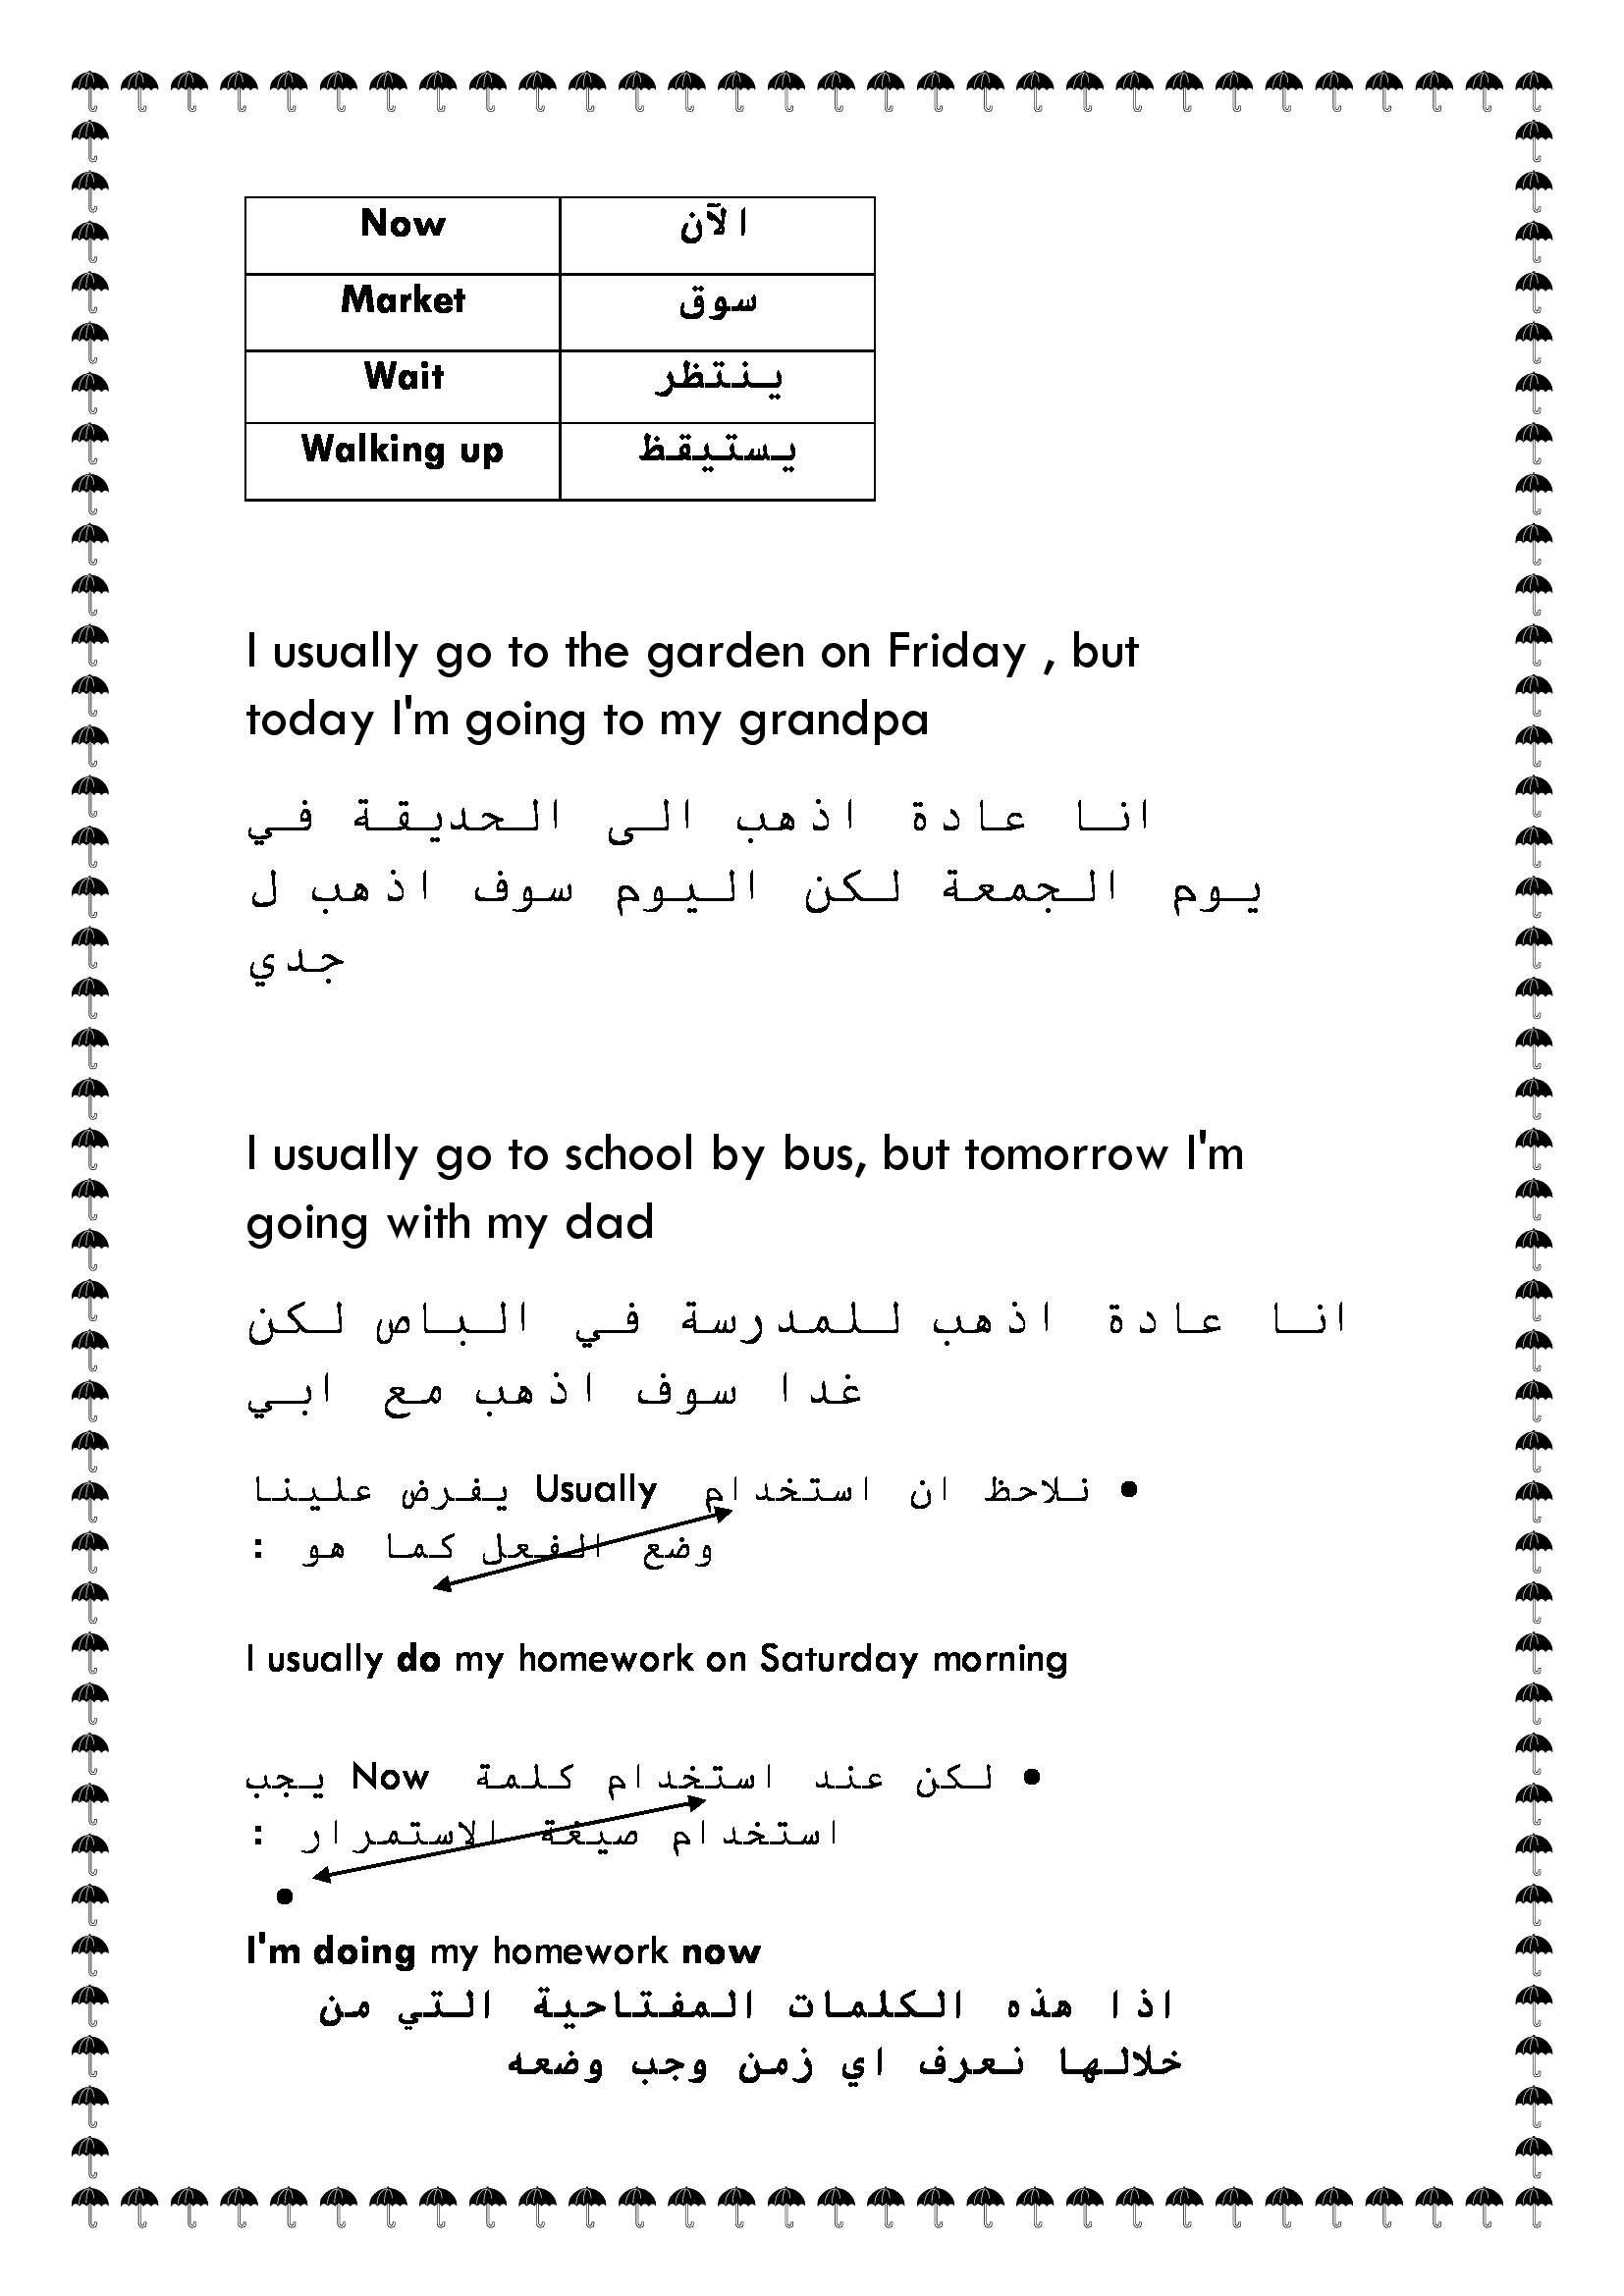 Now الآن
Market سوق
Wait ينتظر
Walking up يستيقظ
I usually go to the garden on Friday , but
today I'm going to my grandpa
انا عادة اذهب الى الحديقة في
يوم الجمعة لكن اليوم سوف اذهب ل
جدي
I usually go to school by bus, but tomorrow I'm
going with my dad
انا عادة اذهب للمدرسة في الباص لكن
غدا سوف اذهب مع ابي
• نلاحظ ان استخدام Usually يفرض علينا
وضع الفعل كما هو :
I usually do my homework on Saturday morning
• لكن عند استخدام كلمة Now يجب
استخدام صيغة الاستمرار :
•
I'm doing my homework now
اذا هذه الكلمات المفتاحية التي من
خلالها نعرف اي زمن وجب وضعه